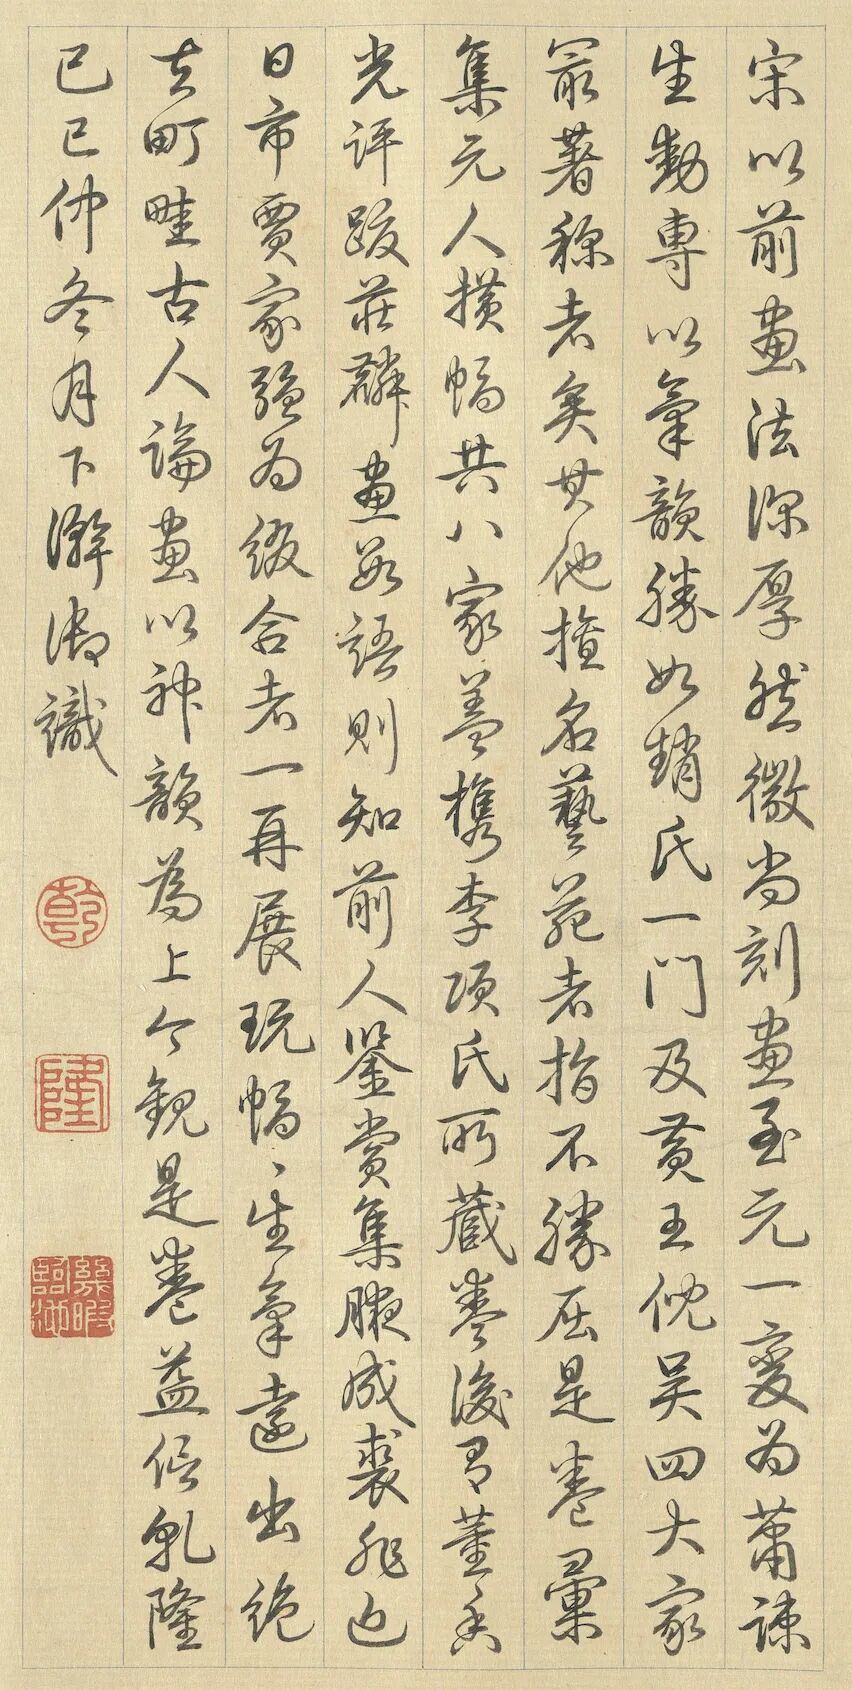 宋以前畫法深厚然微尚刻畫至元一變為蕭疎
生動專以氣韻勝如趙氏一門及黃王倪吳四大家
最著稱者矣其他擅名藝苑者指不勝屈是卷彙
集元人橫幅共八家蓋檇李項氏所藏卷後有董香
光評跋莊麟畫數語則知前人鑒賞集腋成裘非近
日市賈家強為綴合者一再展玩幅幅生氣遠出絕
去町畦古人論畫以神韻為上今觀是卷益信乾隆
己巳仲冬月下澣御識
乾
隆
幾暇
臨池